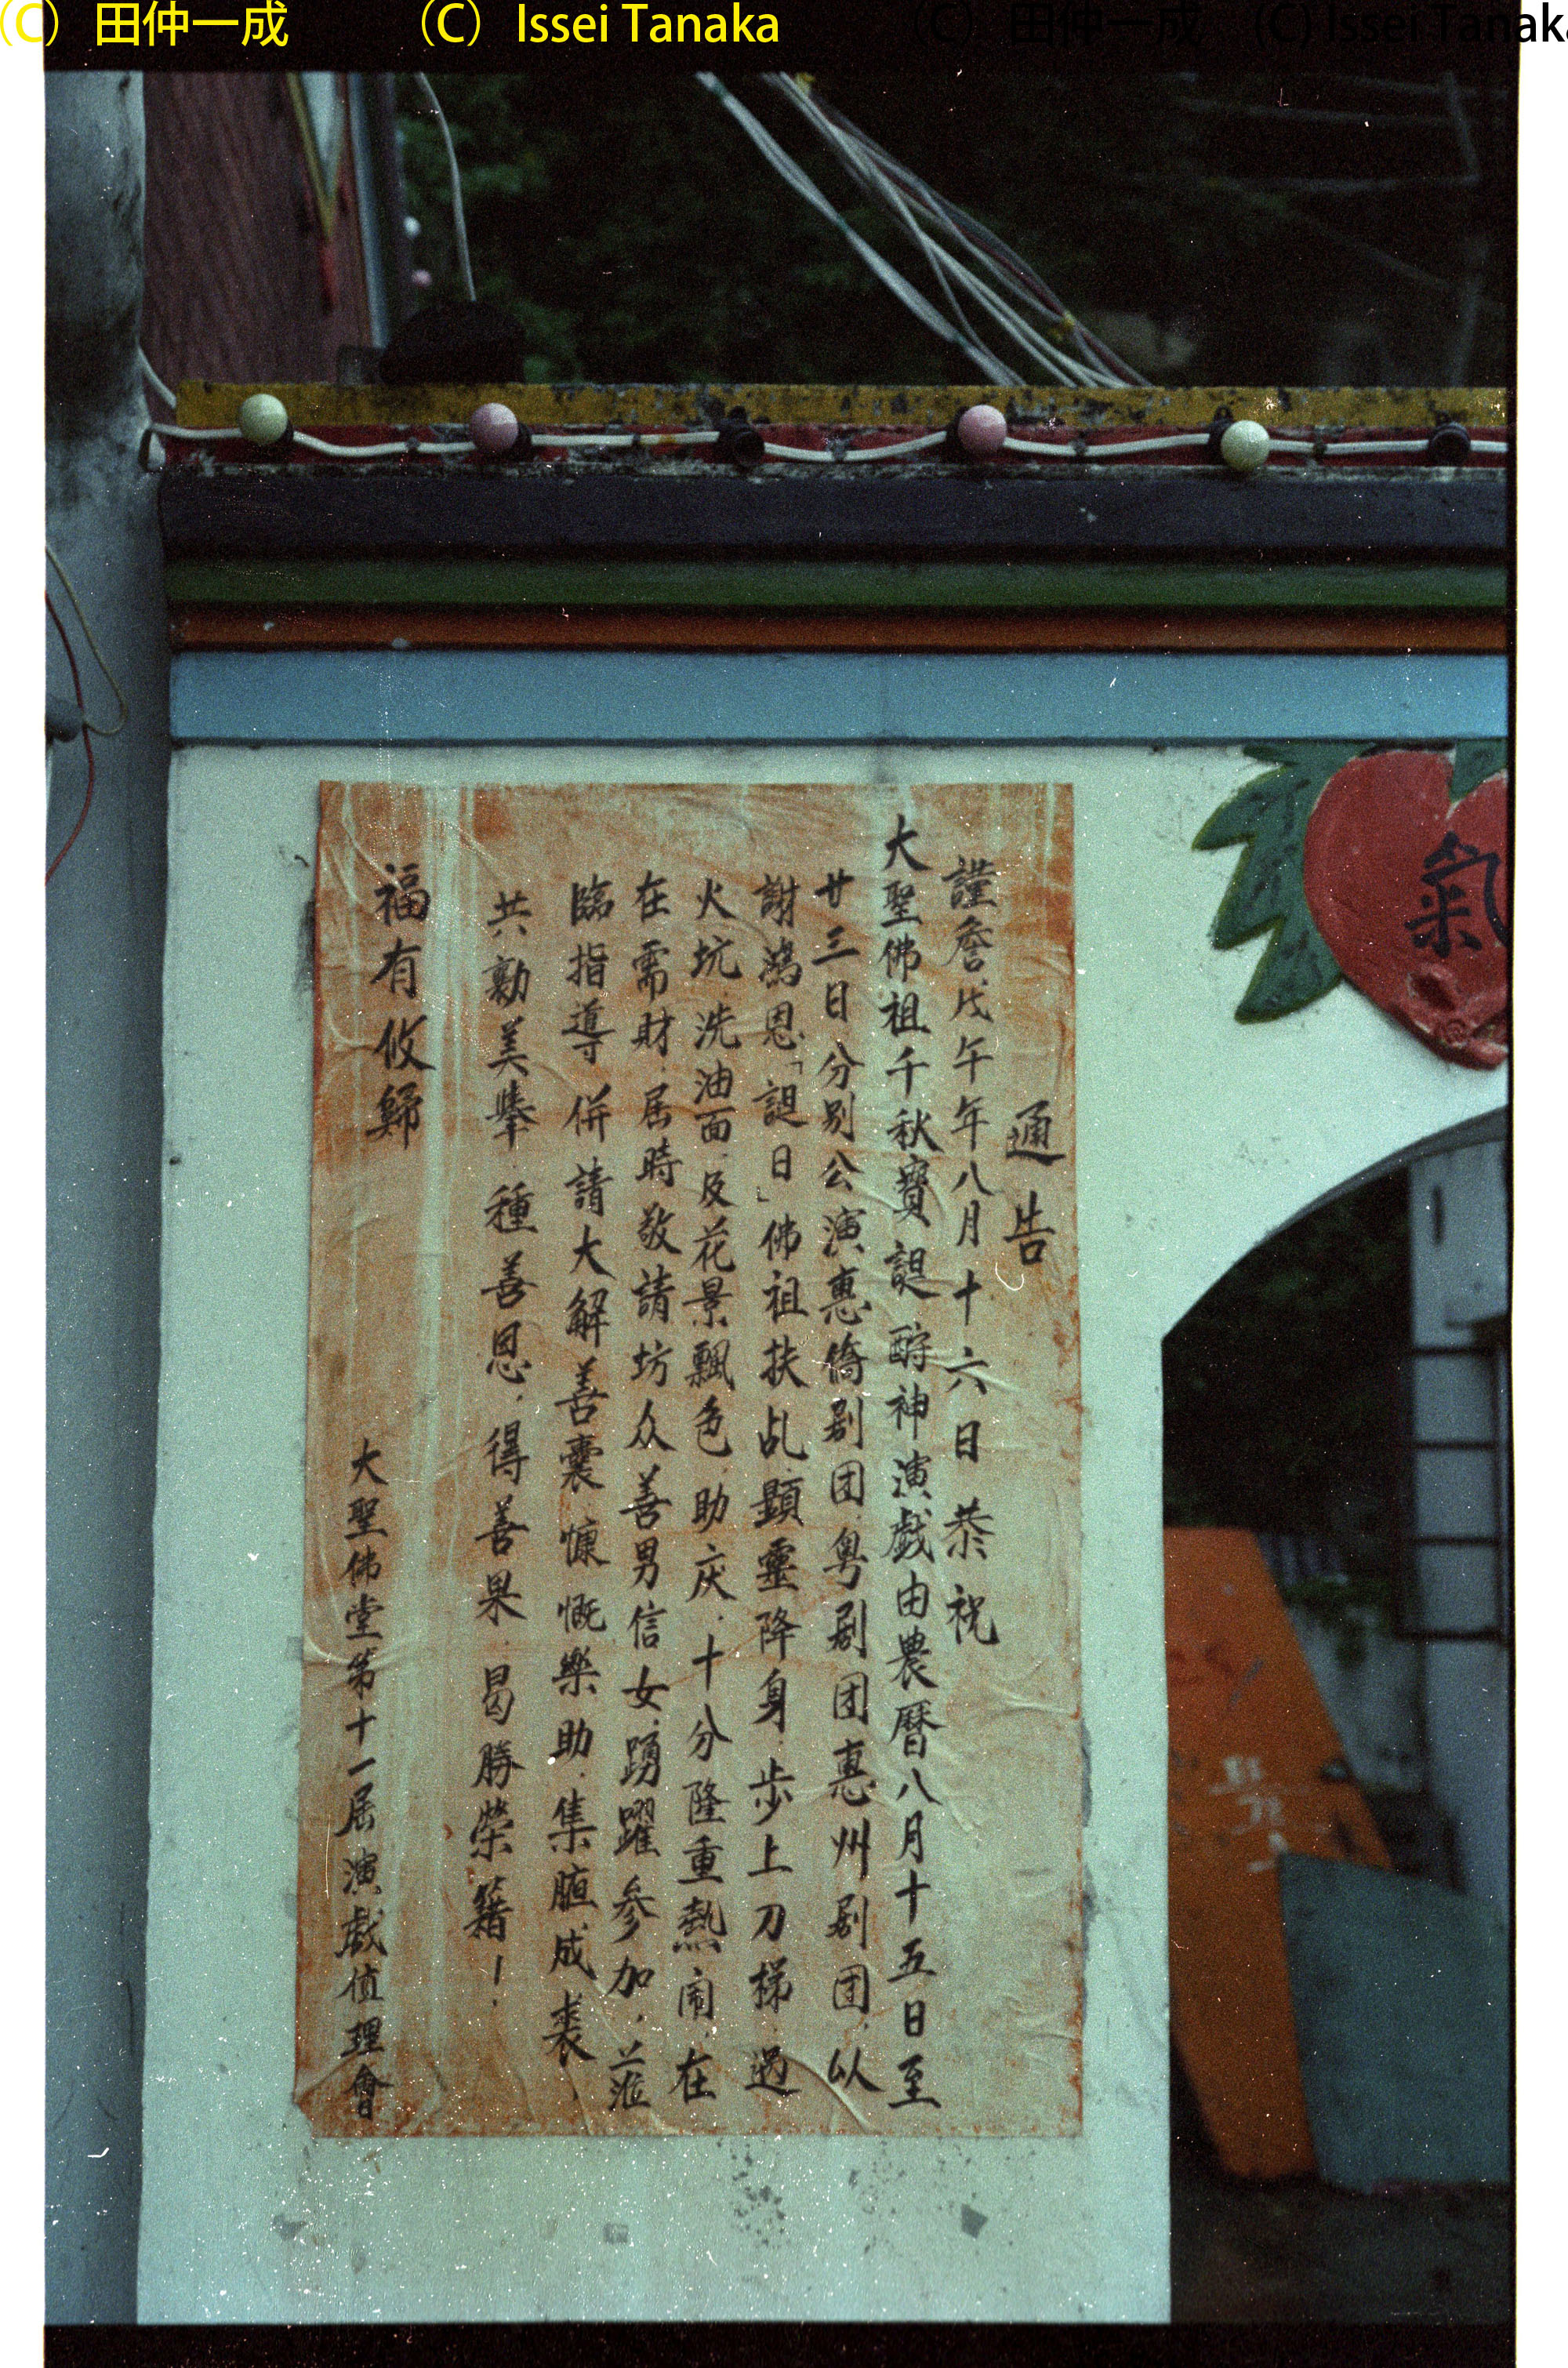 （C）田仲一成　（C）Issei Tanaka　（C）田仲一成　（C）Issei Tanaka
氣
通告
謹詹戊午年八月十六日恭祝
大聖佛祖千秋寶誕酧神演戲由農曆八月十五日至
廿三日分別公演惠僑剧团．粤剧团惠州剧团．以
謝鴻恩．「誕日」佛祖扶乩．顕靈降身．步上刀梯．過
火坑．洗油面．及花景飄色．助庆．十分隆重熱闹．在
在需財．届時敬請坊众善男信女．踴躍參加．蒞
臨指導．併請大解善囊．慷慨樂助．集腋成裘．
共勷美擧．種善恩．得善果．曷勝榮籍！
福有攸歸
大聖佛堂第十一届演戲值理會